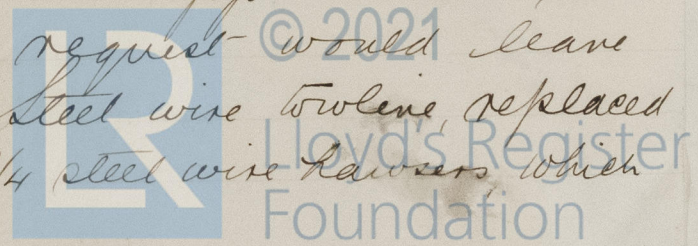 request would leave
Steel wire towline, replaced
1/4 steel wire hawsers which
© 2021
LR
Lloyd's Register
Foundation